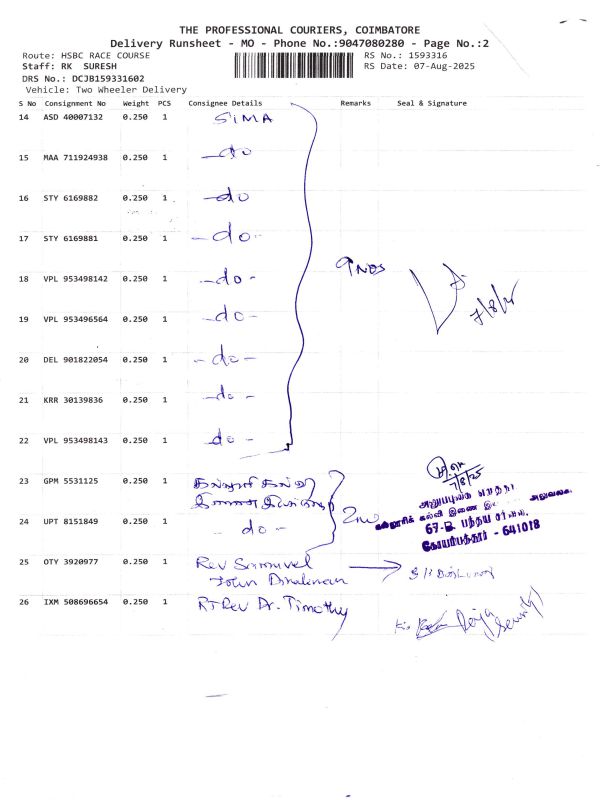 THE PROFESSIONAL COURIERS, COIMBATORE
Delivery Runsheet - MO - Phone No.:9047080280 - Page No.:2
Route: HSBC RACE COURSE
RS No.: 1593316
Staff: RK SURESH
RS Date: 07-Aug-2025
DRS No.: DCJB159331602
Vehicle: Two Wheeler Delivery
S No Consignment No Weight PCS Consignee Details Remarks Seal & Signature
14 ASD 40007132 0.250 1 SIMA
15 MAA 711924938 0.250 1 -do
16 STY 6169882 0.250 1 -do
17 STY 6169881 0.250 1 -do-
9 NOS
18 VPL 953498142 0.250 1 -do-
7/8/25
19 VPL 953496564 0.250 1 -do-
20 DEL 901822054 0.250 1 -do-
21 KRR 30139836 0.250 1 -do-
22 VPL 953498143 0.250 1 -do-
7/8/25
23 GPM 5531125 0.250 1
கல்லூரிக் கல்வி இணை அலுவலக
24 UPT 8151849 0.250 1 -do-
67-B
கோயம்புத்தூர் - 641018
25 OTY 3920977 0.250 1 Rev Samuvel
John
26 IXM 508696654 0.250 1 RT Rev Dr. Timothy
Security